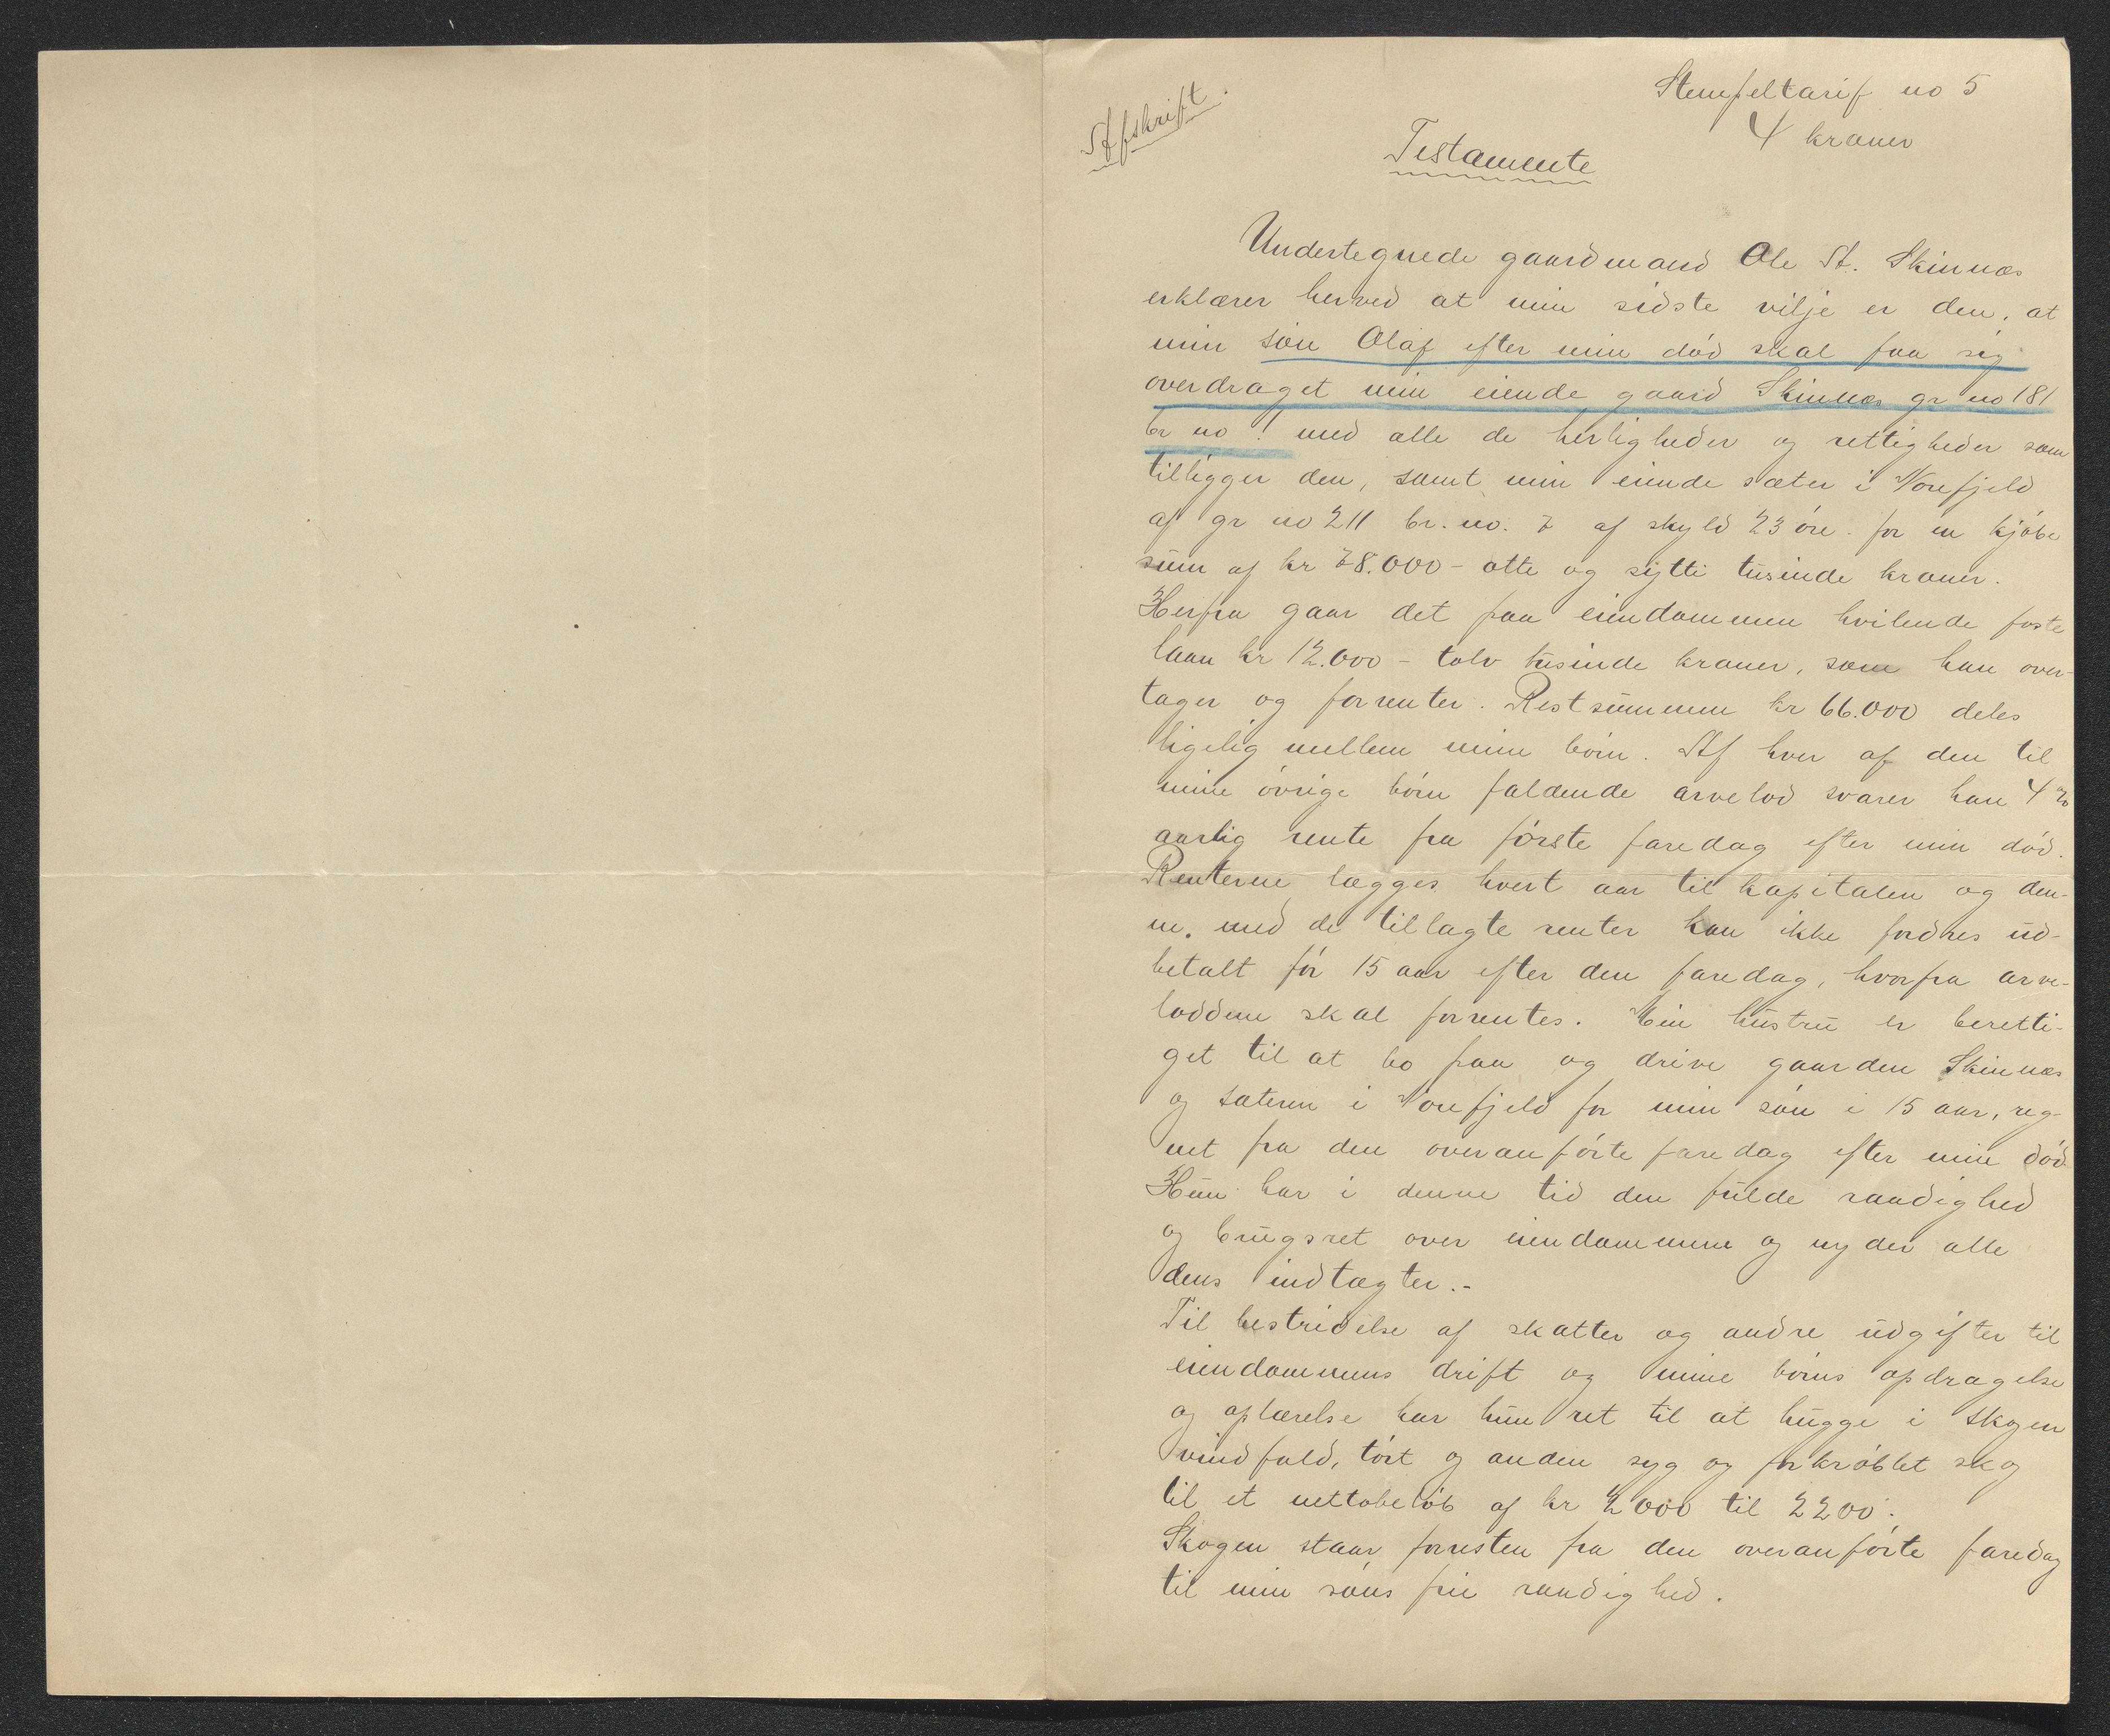 Afskrift.
Stempeltarif no 5
4 kroner
Testamente
Undertegnede gaardmand Ole St. Skinnæs
erklærer herved at min sidste vilje er den, at
min søn Olaf efter min død skal faa sig
overdraget min eiende gaard Skinnæs gr no 181
br no 1 med alle de herligheder og rettigheder som
tilligger den, samt min eiende sæter i Norefjeld
af gr no 211 br. no. 7 af skyld 23 øre. for en kjøbe
sum af kr 78.000 - otte og sytti tusinde kroner.
Herfra gaar det paa eiendommen hvilende faste
laan kr 12.000 - tolv tusinde kroner, som han over-
tager og forrenter. Restsummen kr 66.000 deles
ligelig mellem mine børn. Af hver af den til
mine øvrige børn faldende arvelod svarer han 4 %
aarlig rente fra første faredag efter min død.
Renterne lægges hvert aar til kapitalen og den-
ne. med de tillagte renter kan ikke fordres ud-
betalt før 15 aar efter den faredag, hvorfra arve-
loddene skal forrentes. Min hustru er beretti-
get til at bo paa og drive gaarden Skinnæs
og sæteren i Norefjeld for min søn i 15 aar, reg-
net fra den ovenanførte faredag efter min død.
Hun har i denne tid den fulde raadighed
og brugsret over eiendommene og nyder alle
dens indtægter.-
Til bestridelse af skatter og andre udgifter til
eiendommens drift og mine børns opdragelse
og oplærelse har hun ret til at hugge i skogen
vindfald, tørt og anden syg og forkrøblet skog
til et nettobeløb af kr 2000 til 2200.
Skogen staar forresten fra den ovenanførte faredag
til min søns frie raadighed.